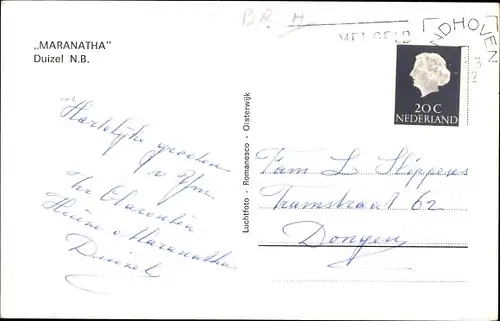 BR H
„MARANATHA”
Duizel N.B.
EINDHOVEN
20 C
NEDERLAND
Luchtfoto - Romanesco - Oisterwijk
Hartelijke groeten
v
Huize Maranatha
Duizel
Fam L Stippens
Tramstraat 62
Dongen